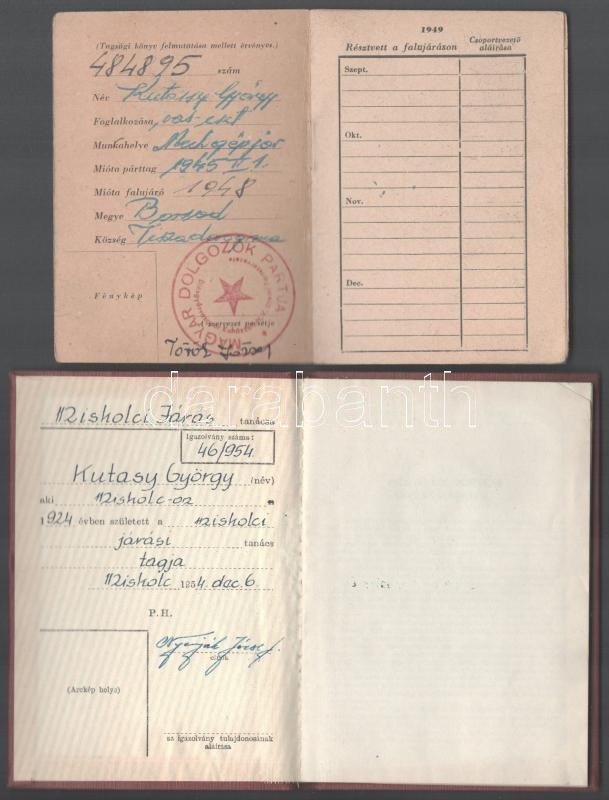 (Tagsági könyv felmutatása mellett érvényes.)
484895 szám
Név Kutasy György
Foglalkozása
Munkahelye
Mióta párttag 1945 II 1.
Mióta falujáró 1948
Megye Borsod
Község
Fénykép
MAGYAR DOLGOZÓK PÁRTJA
A szervezet pecsétje
1949
Résztvett a falujáráson
Csoportvezető
aláírása
Szept.
Okt.
Nov.
Dec.
darabanth
Miskolci Járás tanácsa
Igazolvány száma:
46/954
Kutasy György (név)
aki Miskolc-on
1924 évben született a miskolci
járási tanács
tagja
Miskolc 1954. dec. 6
P. H.
elnök
(Arckép helye)
az igazolvány tulajdonosának
aláírása